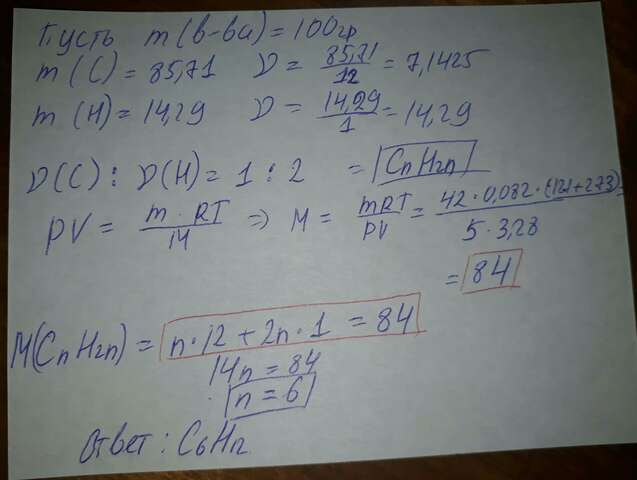 Пусть m(в-ва) = 100гр
m(C) = 85,71 ν = 85,71/12 = 7,1425
m(H) = 14,29 ν = 14,29/1 = 14,29
ν(C) : ν(H) = 1 : 2 = CnH2n
PV = m · RT/M => M = mRT/PV = 42 · 0,082 · (121+273)/5 · 3,28
= 84
M(CnH2n) = n · 12 + 2n · 1 = 84
14n = 84
n = 6
Ответ : C6H12